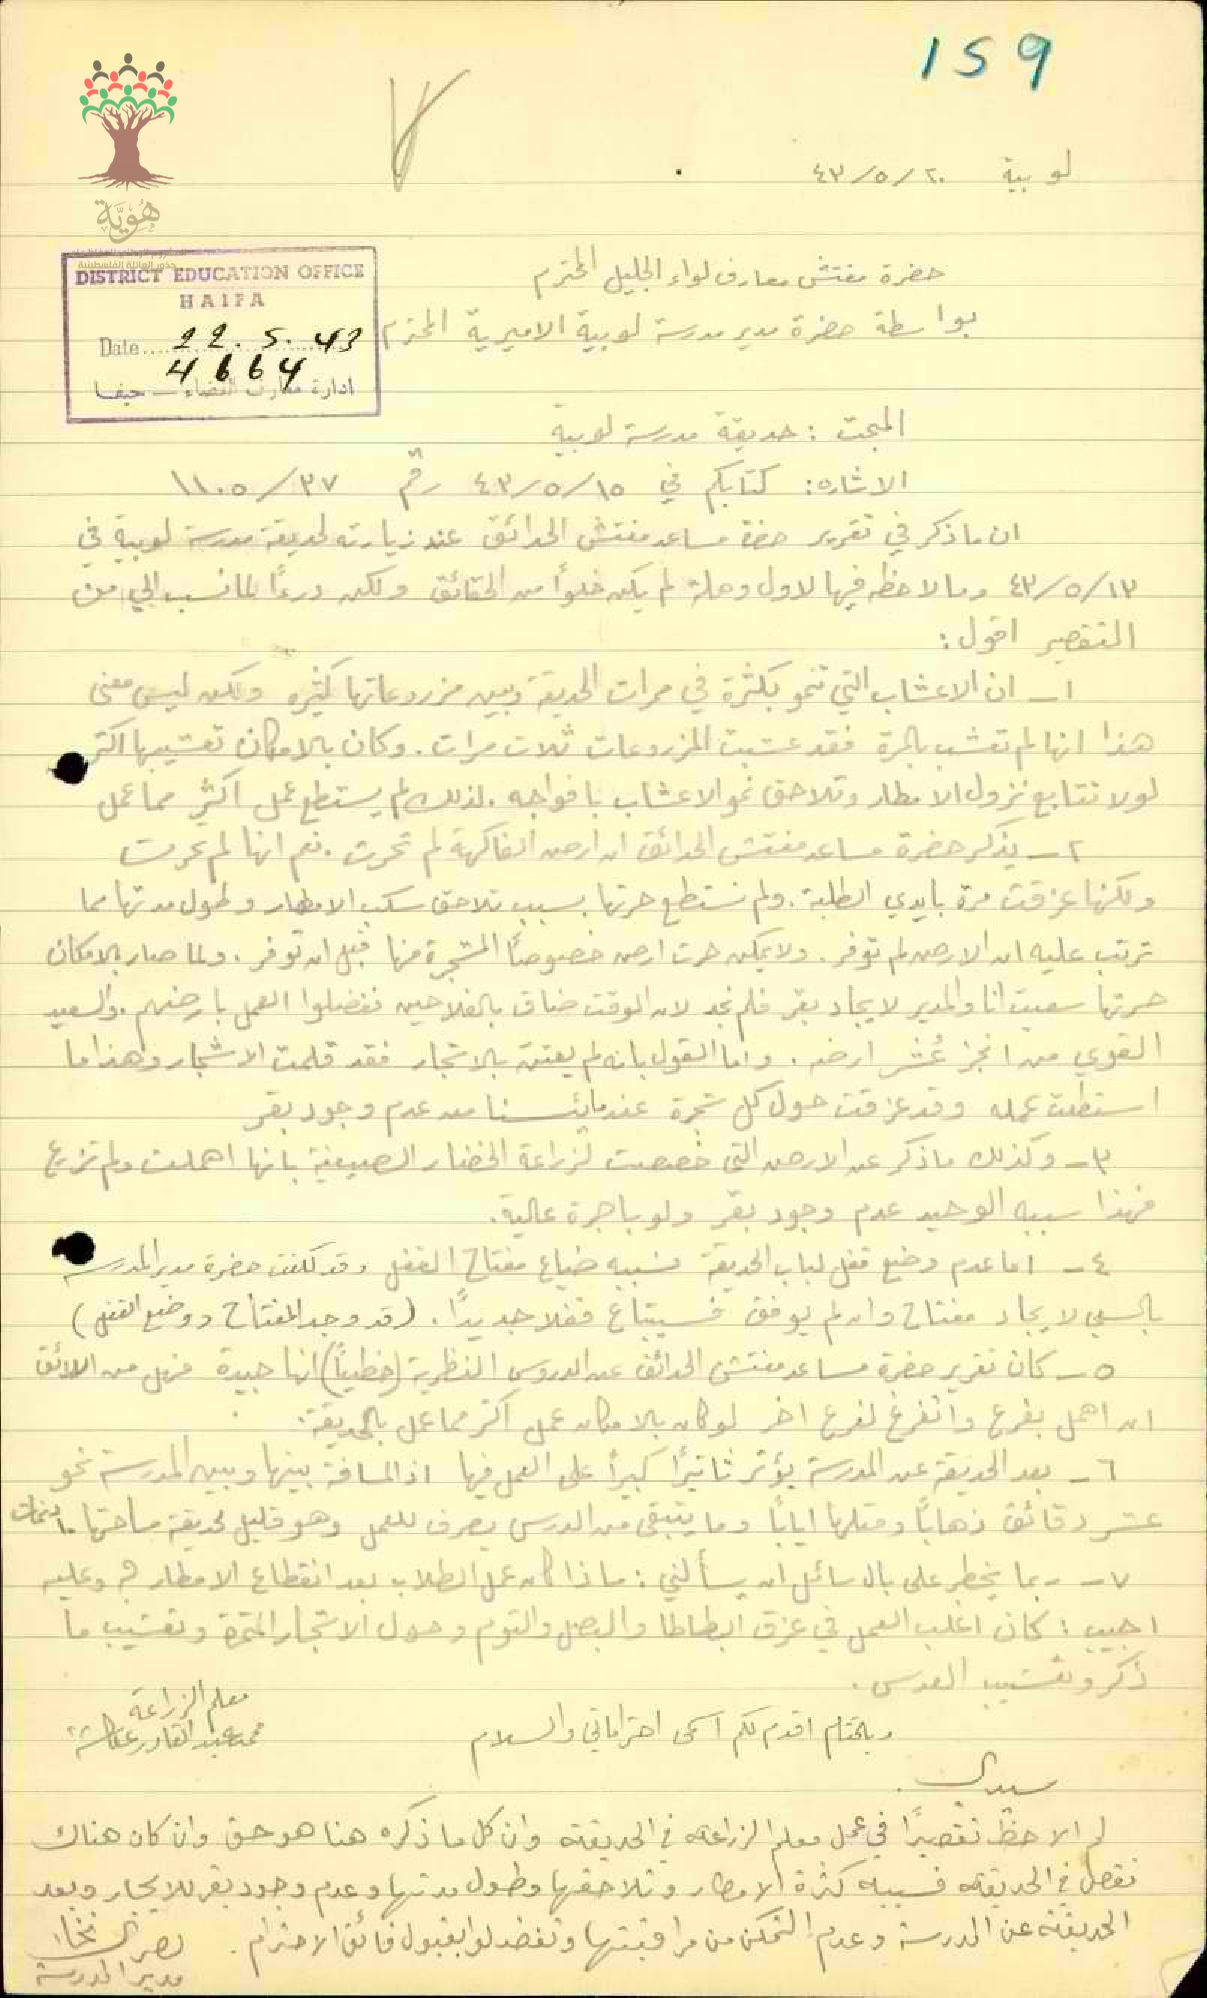 159
لوبية ٢٠/٥/٤٣
هُوِيَّة
DISTRICT EDUCATION OFFICE
HAIFA
Date 22.5.43
4664
ادارة معارف القضاء — حيفا
حضرة مفتش معارف لواء الجليل المحترم
بواسطة حضرة مدير مدرسة لوبية الاميرية المحترم
المبحث : حديقة مدرسة لوبية
الاشاره : كتابكم في ١٥/٥/٤٣ رقم ٣٧/١١٠٥
ان ما ذكر في تقرير حضرة مساعد مفتش الحدائق عند زيارته لحديقة مدرسة لوبية في
١٣/٥/٤٣ وما لاحظه فيها لاول وهلة لم يكن خلوًا من الحقائق ولكن درءًا لما نسب الي من
التقصير اقول :
١- ان الاعشاب التي تنمو بكثرة في ممرات الحديقة وبين مزروعاتها كثيره ولكن ليس معنى
هذا انها لم تعشب بالمرة فقد عشبت المزروعات ثلاث مرات . وكان بالامكان تعشيبها اكثر
لولا تتابع نزول الامطار وتلاحق نمو الاعشاب بافواجه . لذلك لم يستطع عمل اكثر مما عمل
٢- يذكر حضرة مساعد مفتش الحدائق ان ارض الفاكهة لم تحرث . نعم انها لم تحرث
ولكنها عزقت مرة بايدي الطلبة . ولم نستطع حرثها بسبب تلاحق سكب الامطار وطول مدتها مما
ترتب عليه ان الارض لم توفر . ولا يمكن حرث ارض خصوصًا المشجرة منها قبل ان توفر . ولما صار بالامكان
حرثها سعيت انا والمدير لايجاد بقر فلم نجد لان الوقت ضاق بالفلاحين ففضلوا العمل بارضهم . والسعيد
القوي من انجز عُشر ارضه . واما القول بانه لم يعتن بالاشجار فقد قلمت الاشجار وهذا ما
استطعت عمله وقد عزقت حول كل شجرة عندما يئسنا من عدم وجود بقر
٣- وكذلك ما ذكر عن الارض التي خصصت لزراعة الخضار الصيفية بانها اهملت ولم تزرع
فهذا سببه الوحيد عدم وجود بقر ولو باجرة عالية .
٤- اما عدم وضع قفل لباب الحديقة فسببه ضياع مفتاح القفل وقد كلفت حضرة مدير المدرسة
بالسعي لايجاد مفتاح وان لم يوفق فسيبتاع قفلا جديدًا . (قد وجد المفتاح ووضع القفل)
٥- كان تقرير حضرة مساعد مفتش الحدائق عن الدروس النظرية (خطيًا) انها جيدة فهل من اللائق
ان اهمل بفرع واتفرغ لفرع اخر لو كان بالامكان عمل اكثر مما عمل بالحديقة .
٦- بعد الحديقة عن المدرسة يؤثر تاثيرًا كبيرًا على العمل فيها اذ المسافة بينها وبين المدرسة نحو
عشر دقائق ذهابًا ومثلها ايابًا وما يتبقى من الدرس يصرف للعمل وهو قليل لحديقة مساحتها ١٠ دنمات
٧- ربما يخطر على بال سائل ان يسألني : ماذا كان عمل الطلاب بعد انقطاع الامطار ؟ وعليه
اجيب : كان اغلب العمل في عزق البطاطا والبصل والثوم وحول الاشجار المثمرة وتعشيب ما
ذكر وتعشيب العدس .
وبالختام اقدم لكم اسمى احتراماتي والسلام
معلم الزراعة
محمد عبد القادر
سيدي .
لم الاحظ تقصيرًا في عمل معلم الزراعه في الحديقه وان كل ما ذكره هنا هو حق وان كان هناك
نقص في الحديقه فسببه كثرة الامطار وتلاحقها وطول مدتها وعدم وجود بقر للايجار وبعد
الحديقة عن المدرسة وعدم التمكن من مراقبتها وتفضلوا بقبول فائق الاحترام .
مدير المدرسة